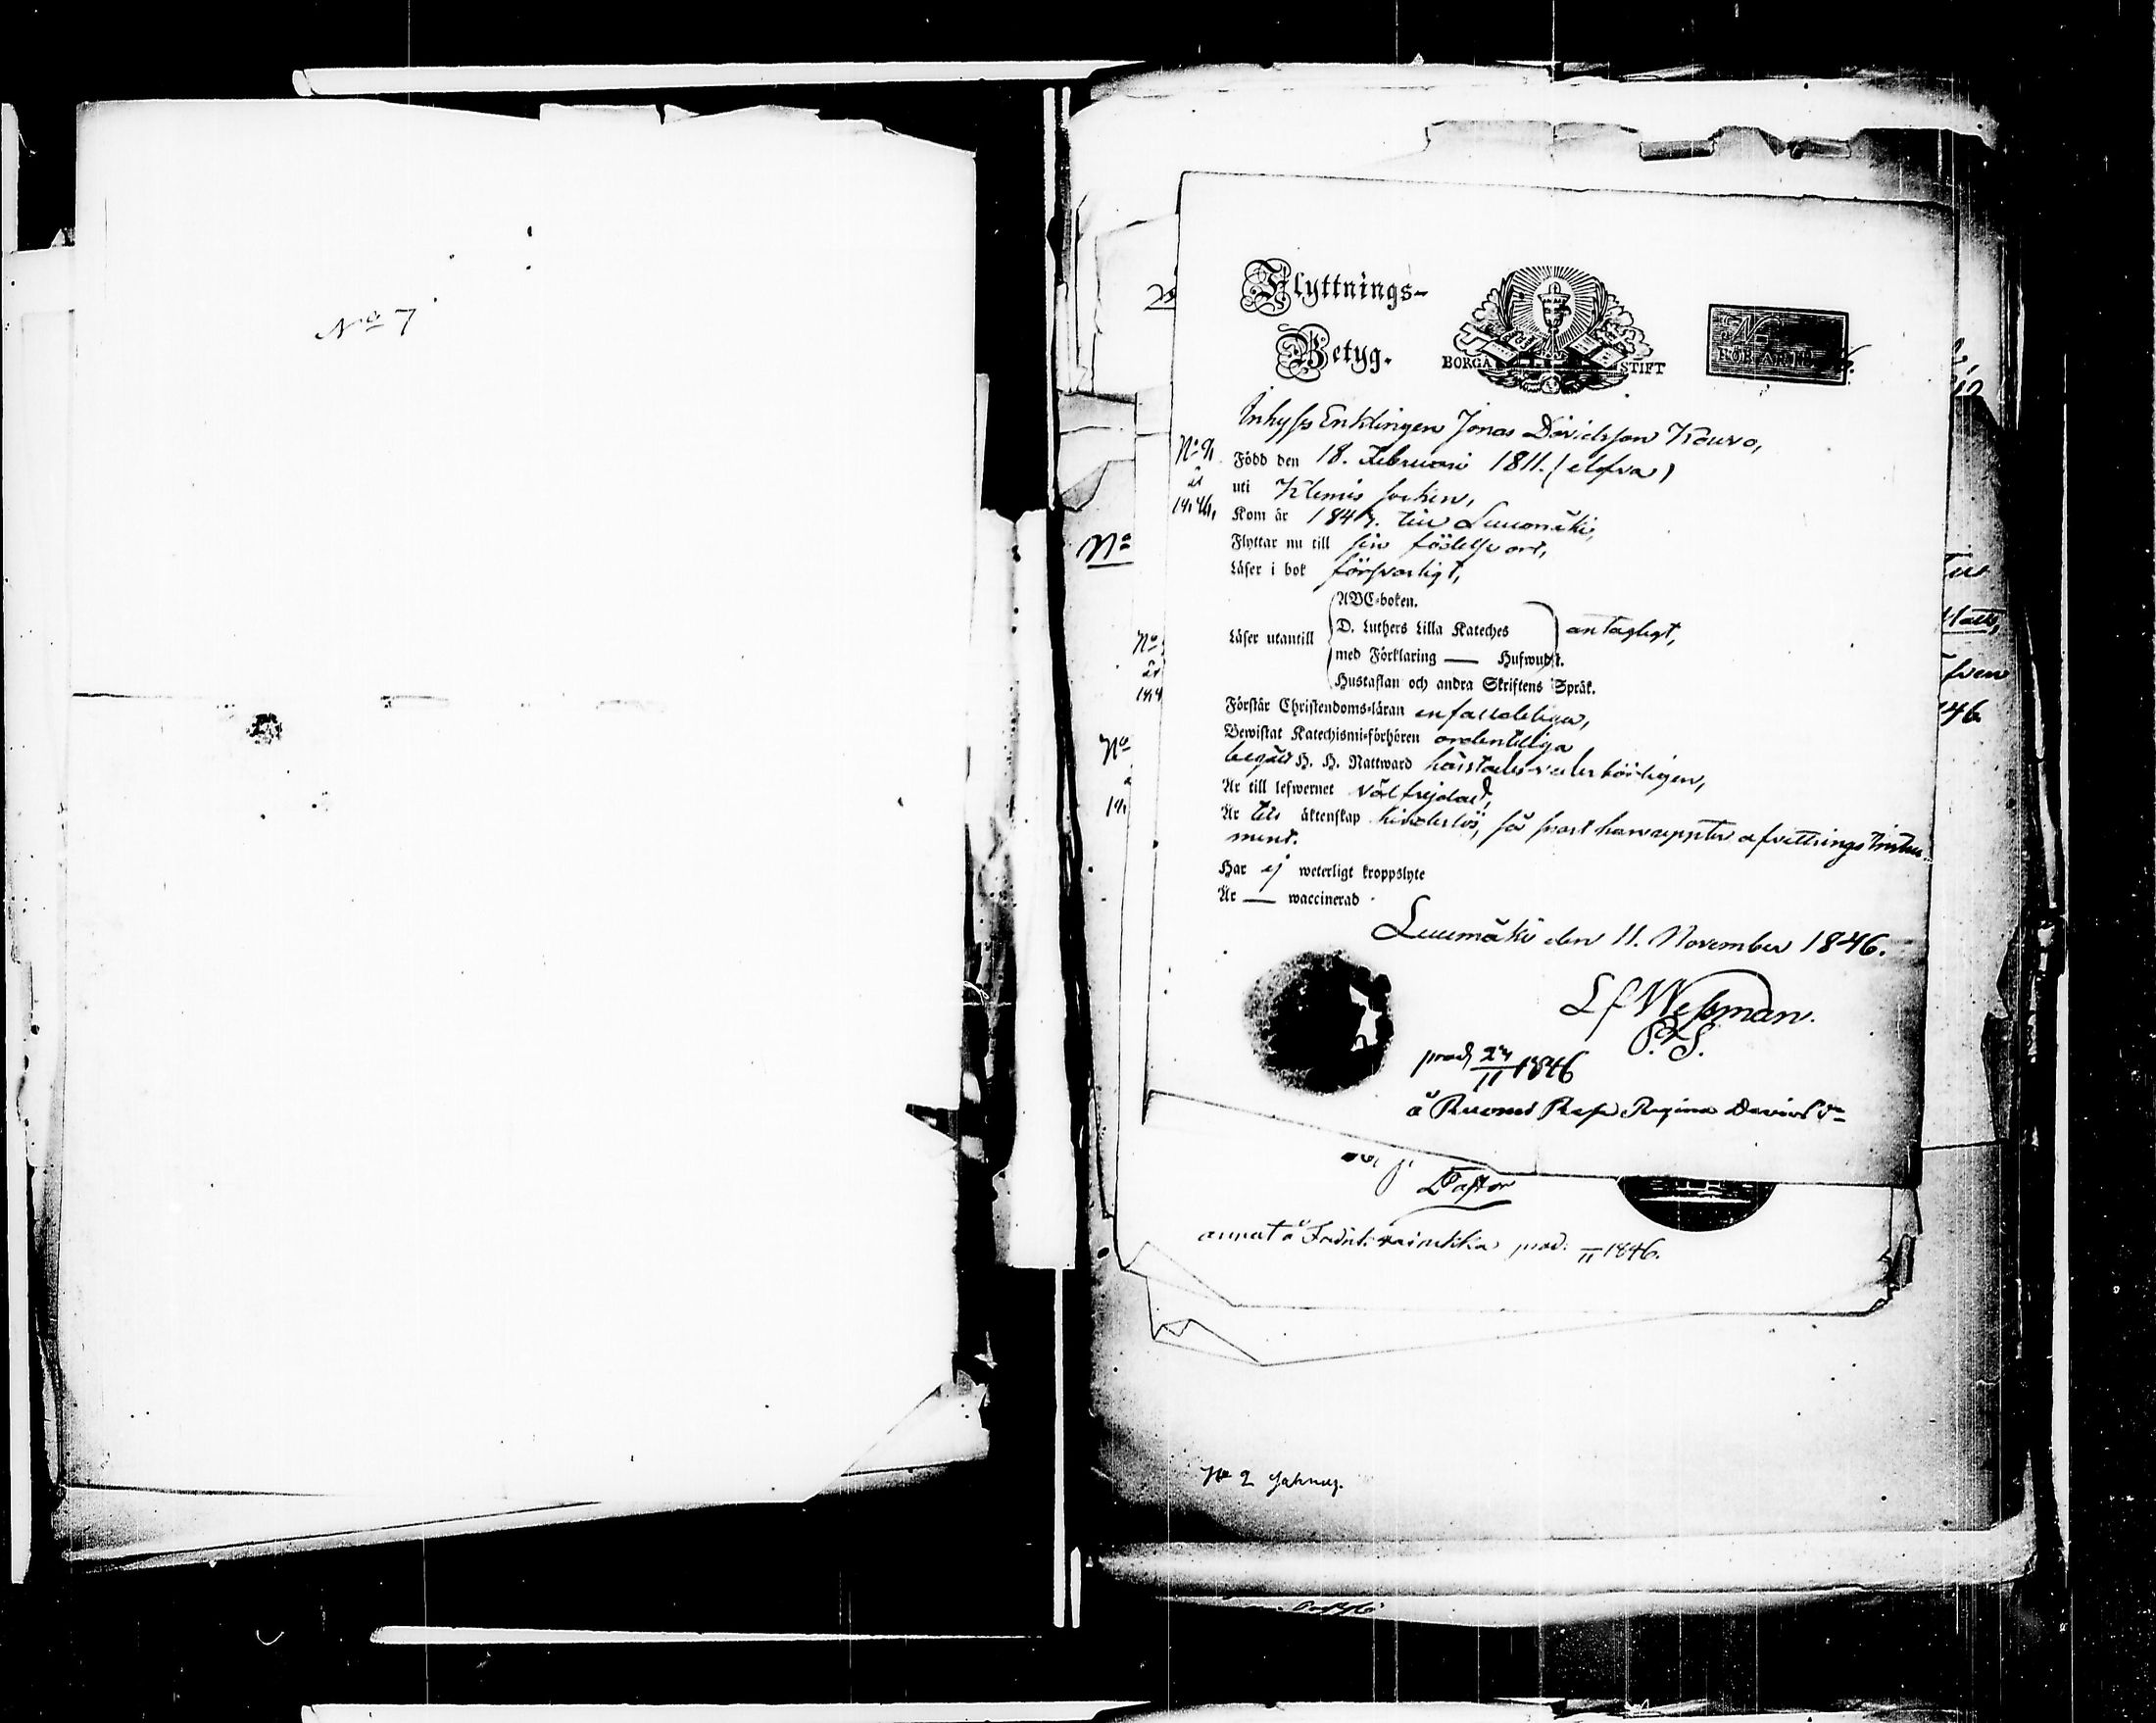 No 7
Flyttnings-
Betyg.
BORGÅ STIFT
Inhyses Enklingen Jonas Davidsson Kouvo,
No 91
år
1846,
Född den 18. Februari 1811. (elfva)
uti Klemis socken,
Kom år 1843. till Luumäki,
Flyttar nu till sin födelse ort,
Läser i bok försvarligt,
Läser utantill
ABC-boken.
D. Luthers Lilla Kateches
med Förklaring — Hufwudst.
Hustaflan och andra Skriftens Språk.
antagligt,
Förstår Christendoms-läran enfaldeligen,
Bewistat Katechismi-förhören ordentliga
begått H. H. Nattward härstädes vederbörligen,
Är till lefwernet välfrejdad,
Är till äktenskap hinderlös, så snart han uppter afvittrings Instru-
ment.
Har ej weterligt kroppslyte
Är — waccinerad
Luumäki den 11. November 1846.
Lf Wessman.
P. L. S.
prod 24/11 1846
å Regina
Pastor
prod. 11 1846.
No
No
No
46
No 2